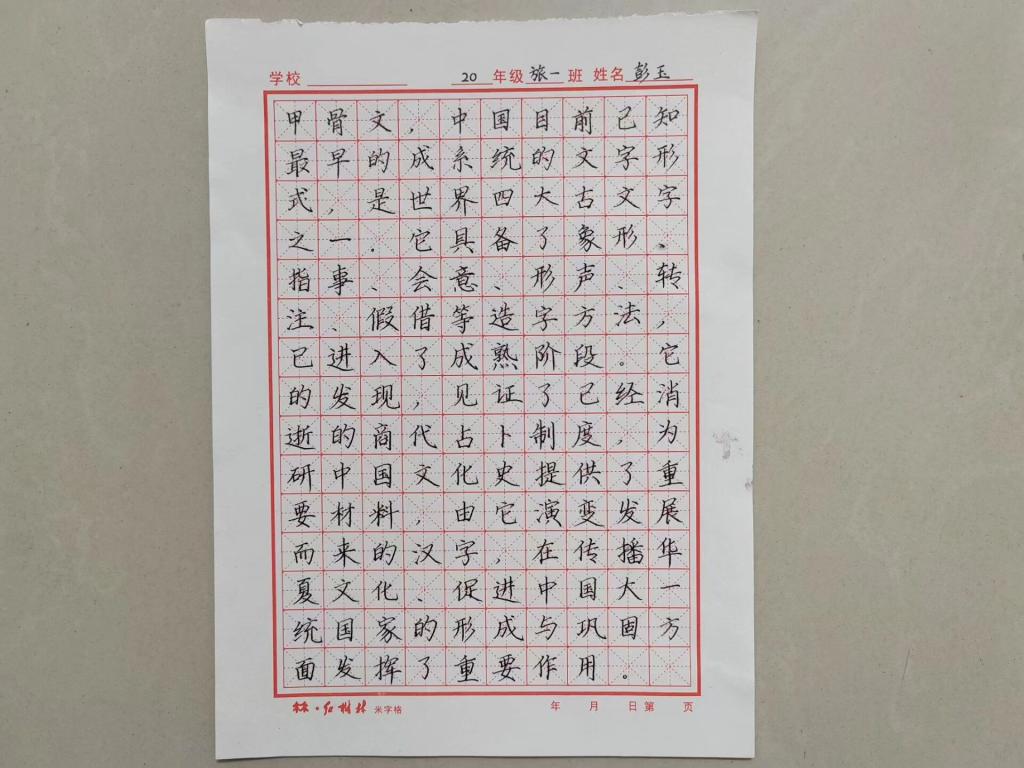 学校 20 年级 旅一 班 姓名 彭玉
甲骨文，中国目前已知
最早的成系统的文字形
式，是世界四大古文字
之一．它具备了象形、
指事、会意、形声、转
注、假借等造字方法，
已进入了成熟阶段。它
的发现，见证了已经消
逝的商代占卜制度，为
研中国文化史提供了重
要材料，由它演变发展
而来的汉字，在传播华
夏文化、促进中国大一
统国家的形成与巩固方
面发挥了重要作用。
米字格 年 月 日 第 页